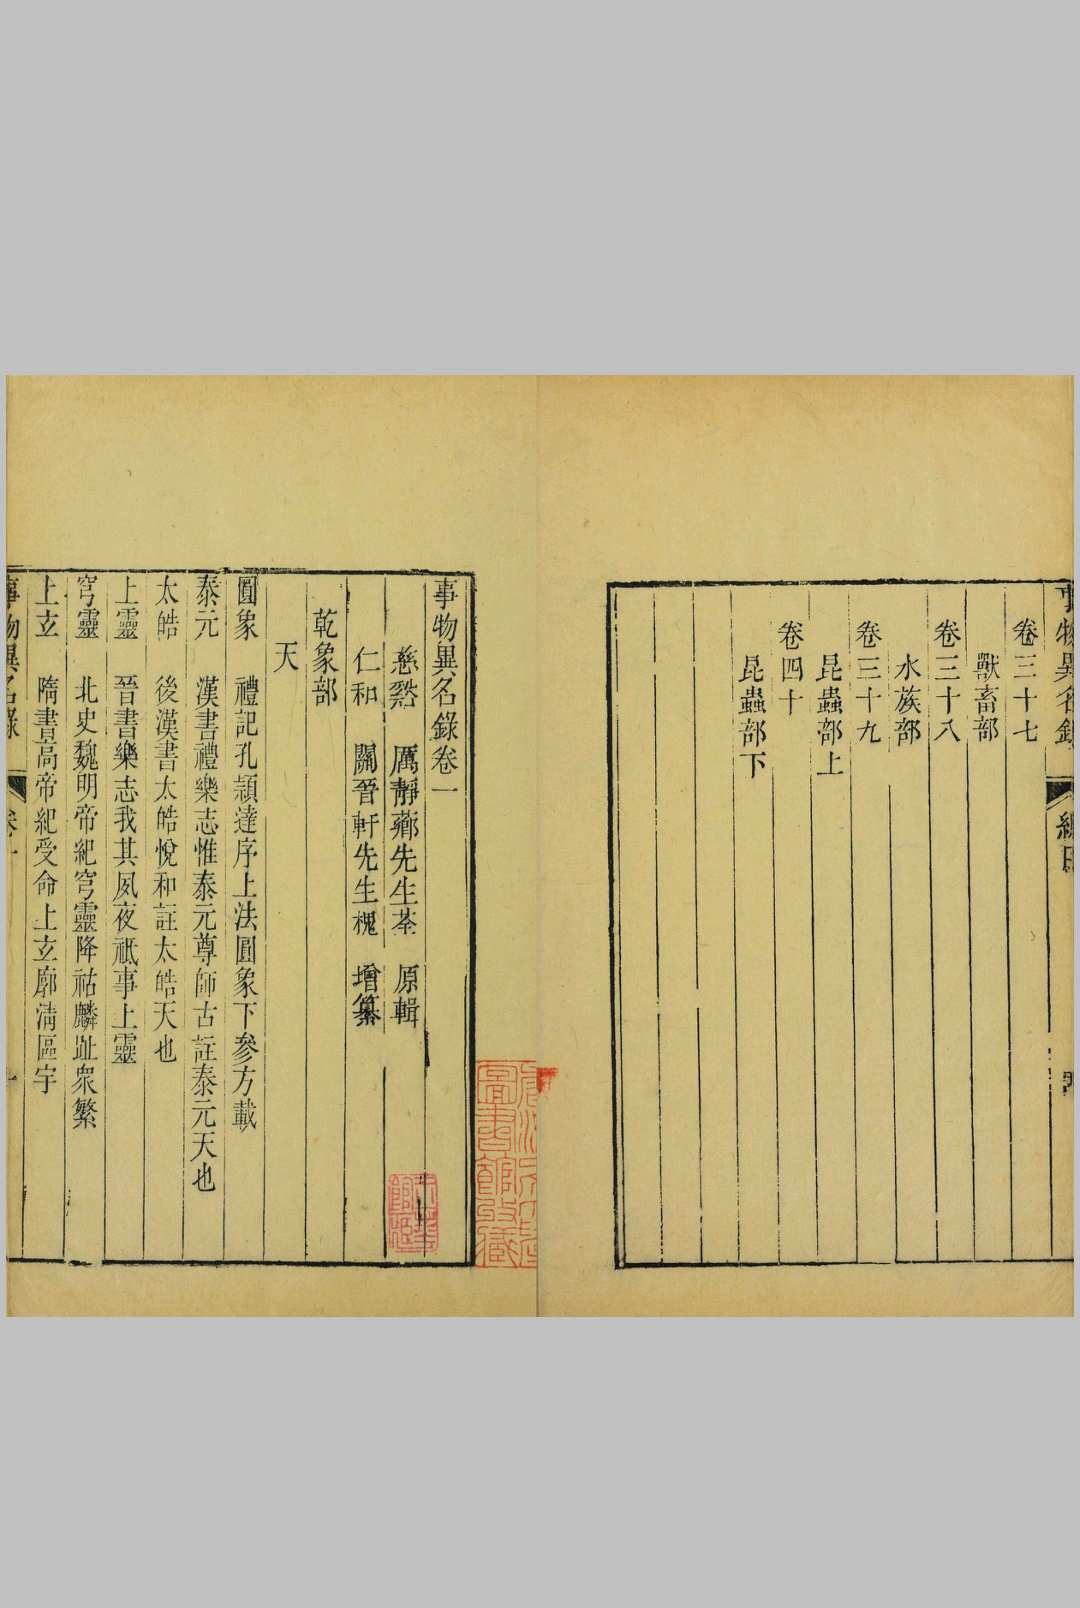 事物異名錄
總目
卷三十七
獸畜部
卷三十八
水族部
卷三十九
昆蟲部上
卷四十
昆蟲部下
事物異名錄卷一
慈谿 厲靜薌先生荃 原輯
仁和 關晉軒先生槐 增纂
乾象部
天
圓象 禮記孔穎達序上法圓象下參方載
泰元 漢書禮樂志惟泰元尊師古註泰元天也
太皓 後漢書太皓悅和註太皓天也
上靈 晉書樂志我其夙夜祗事上靈
穹靈 北史魏明帝紀穹靈降祜麟趾衆繁
上玄 隋書高帝紀受命上玄廓淸區宇
事物異名錄
卷一
一
圖書館收藏